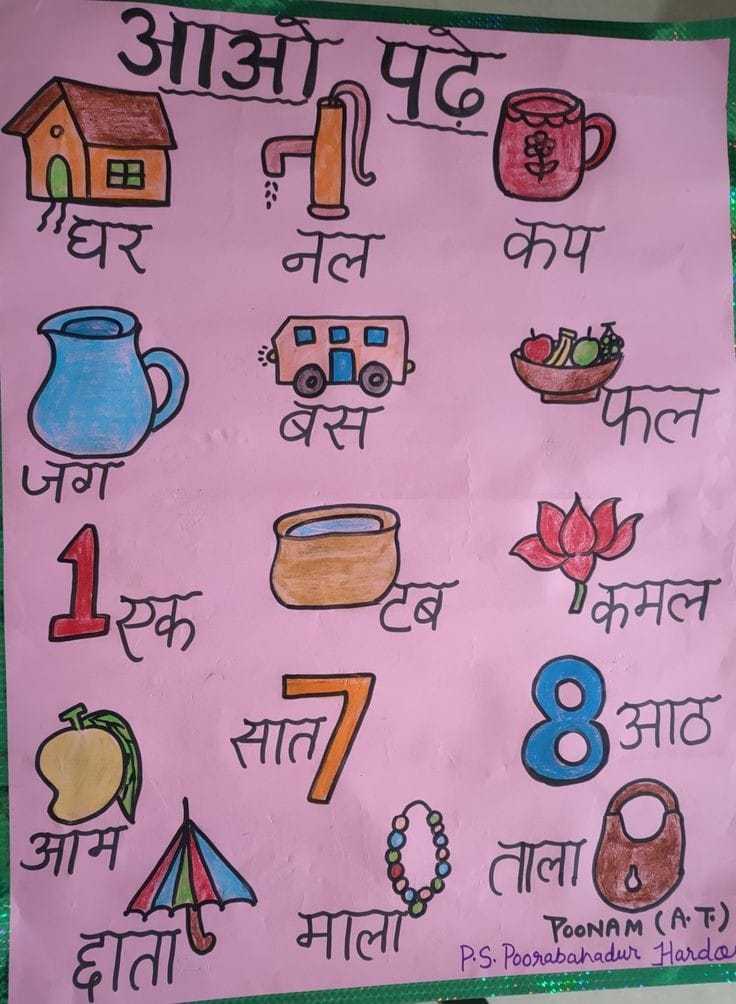 आओ पढ़े
घर
नल
कप
जग
बस
फल
1 एक
टब
कमल
सात 7
8 आठ
आम
छाता
माला
ताला
POONAM (A.T.)
P.S. Poorabahadur